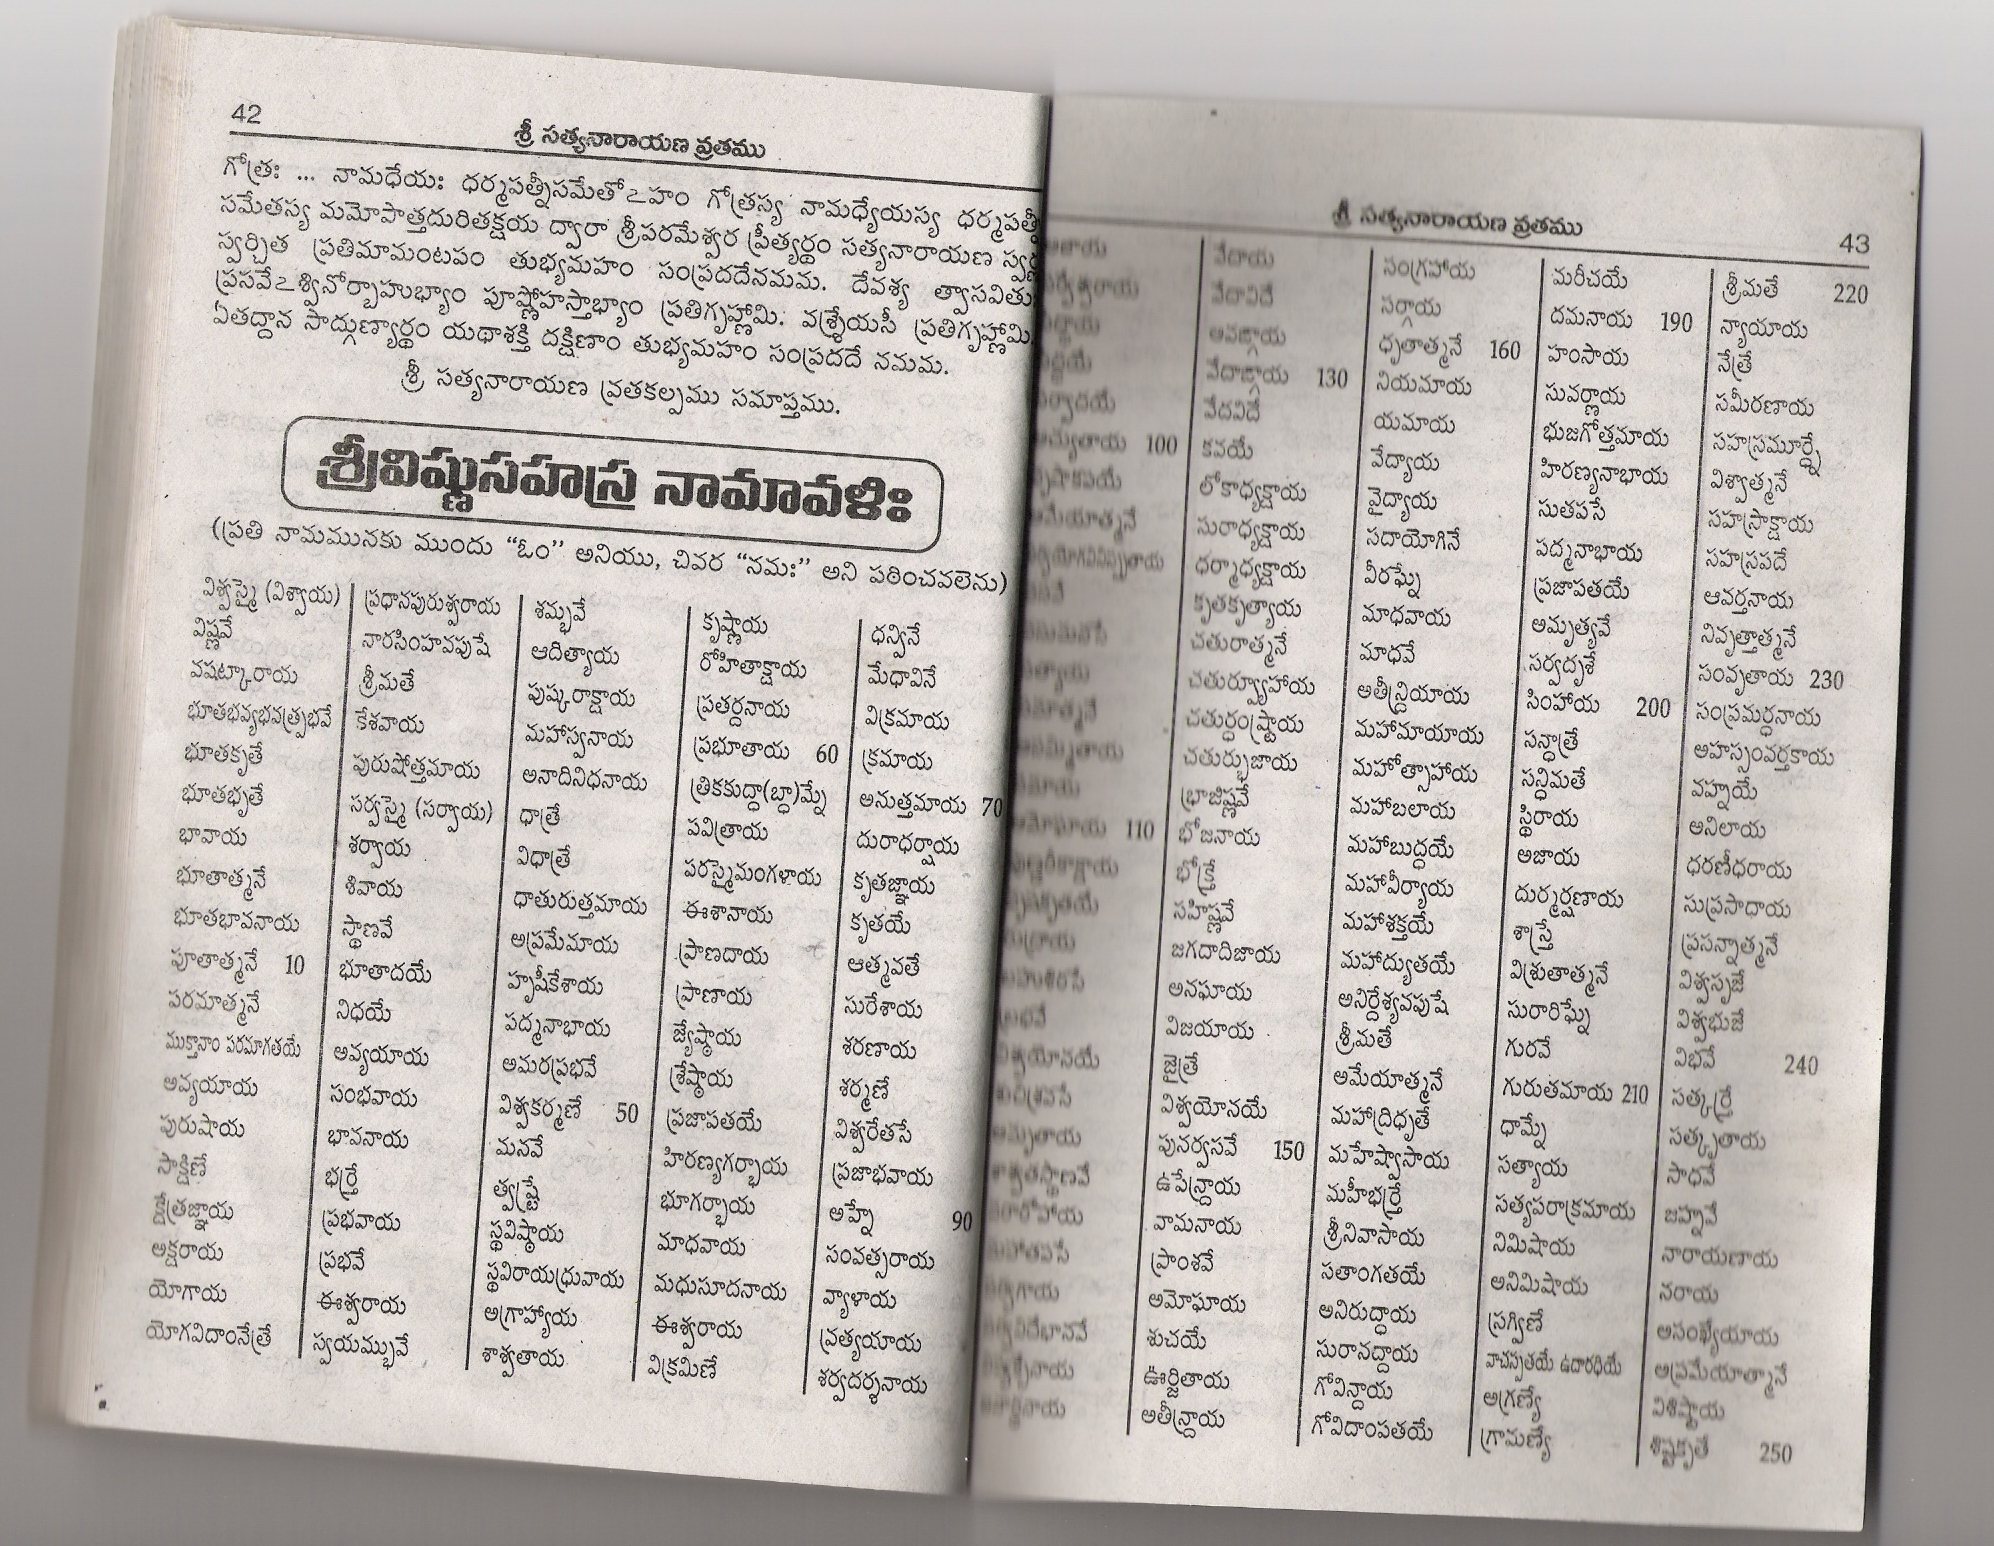 42
శ్రీ సత్యనారాయణ వ్రతము
గోత్రః ... నామధేయః ధర్మపత్నీసమేతోఽహం గోత్రస్య నామధ్యేయస్య ధర్మపత్నీ
సమేతస్య మమోపాత్తదురితక్షయ ద్వారా శ్రీపరమేశ్వర ప్రీత్యర్థం సత్యనారాయణ స్వర్ణ
స్వర్చిత ప్రతిమామంటపం తుభ్యమహం సంప్రదదేనమమ. దేవశ్య త్వాసవితుః
ప్రసవేఽశ్వినోర్బాహుభ్యాం పూష్ణోహస్తాభ్యాం ప్రతిగృహ్ణామి. వశ్శ్రేయసీ ప్రతిగృహ్ణామి.
ఏతద్దాన సాద్గుణ్యార్థం యథాశక్తి దక్షిణాం తుభ్యమహం సంప్రదదే నమమ.
శ్రీ సత్యనారాయణ వ్రతకల్పము సమాప్తము.
శ్రీవిష్ణుసహస్ర నామావళిః
(ప్రతి నామమునకు ముందు “ఓం” అనియు, చివర “నమః” అని పఠించవలెను)
విశ్వస్మై (విశ్వాయ)
విష్ణవే
వషట్కారాయ
భూతభవ్యభవత్ప్రభవే
భూతకృతే
భూతభృతే
భావాయ
భూతాత్మనే
భూతభావనాయ
పూతాత్మనే 10
పరమాత్మనే
ముక్తానాం పరమాగతయే
అవ్యయాయ
పురుషాయ
సాక్షిణే
క్షేత్రజ్ఞాయ
అక్షరాయ
యోగాయ
యోగవిదాంనేత్రే
ప్రధానపురుశ్వరాయ
నారసింహవపుషే
శ్రీమతే
కేశవాయ
పురుషోత్తమాయ
సర్వస్మై (సర్వాయ)
శర్వాయ
శివాయ
స్థాణవే
భూతాదయే
నిధయే
అవ్యయాయ
సంభవాయ
భావనాయ
భర్త్రే
ప్రభవాయ
ప్రభవే
ఈశ్వరాయ
స్వయమ్భువే
శమ్భవే
ఆదిత్యాయ
పుష్కరాక్షాయ
మహాస్వనాయ
అనాదినిధనాయ
ధాత్రే
విధాత్రే
ధాతురుత్తమాయ
అప్రమేమాయ
హృషీకేశాయ
పద్మనాభాయ
అమరప్రభవే
విశ్వకర్మణే 50
మనవే
త్వష్ట్రే
స్థవిష్ఠాయ
స్థవిరాయధ్రువాయ
అగ్రాహ్యాయ
శాశ్వతాయ
కృష్ణాయ
రోహితాక్షాయ
ప్రతర్దనాయ
ప్రభూతాయ 60
త్రికకుద్ధా(బ్ధా)మ్నే
పవిత్రాయ
పరస్మైమంగళాయ
ఈశానాయ
ప్రాణదాయ
ప్రాణాయ
జ్యేష్ఠాయ
శ్రేష్ఠాయ
ప్రజాపతయే
హిరణ్యగర్భాయ
భూగర్భాయ
మాధవాయ
మధుసూదనాయ
ఈశ్వరాయ
విక్రమిణే
ధన్వినే
మేధావినే
విక్రమాయ
క్రమాయ
అనుత్తమాయ 70
దురాధర్షాయ
కృతజ్ఞాయ
కృతయే
ఆత్మవతే
సురేశాయ
శరణాయ
శర్మణే
విశ్వరేతసే
ప్రజాభవాయ
అహ్నే 90
సంవత్సరాయ
వ్యాళాయ
వ్రత్యయాయ
శర్వదర్శనాయ
శ్రీ సత్యనారాయణ వ్రతము
43
100
110
వేదాయ
వేదావిదే
అవఙ్గాయ
వేదాఙ్గాయ 130
వేదవిదే
కవయే
లోకాధ్యక్షాయ
సురాధ్యక్షాయ
ధర్మాధ్యక్షాయ
కృతకృత్యాయ
చతురాత్మనే
చతుర్వ్యూహాయ
చతుర్ధంష్ట్రాయ
చతుర్భుజాయ
భ్రాజిష్ణవే
భోజనాయ
భోక్త్రే
సహిష్ణవే
జగదాదిజాయ
అనఘాయ
విజయాయ
జైత్రే
విశ్వయోనయే
పునర్వసవే 150
ఉపేన్ద్రాయ
వామనాయ
ప్రాంశవే
అమోఘాయ
శుచయే
ఊర్జితాయ
అతీన్ద్రాయ
సంగ్రహాయ
సర్గాయ
ధృతాత్మనే 160
నియమాయ
యమాయ
వేద్యాయ
వైద్యాయ
సదాయోగినే
వీరఘ్నే
మాధవాయ
మాధవే
అతీన్ద్రియాయ
మహామాయాయ
మహోత్సాహాయ
మహాబలాయ
మహాబుద్ధయే
మహావీర్యాయ
మహాశక్తయే
మహాద్యుతయే
అనిర్దేశ్యవపుషే
శ్రీమతే
అమేయాత్మనే
మహాద్రిధృతే
మహేష్వాసాయ
మహీభర్త్రే
శ్రీనివాసాయ
సతాంగతయే
అనిరుద్ధాయ
సురానద్దాయ
గోవిన్దాయ
గోవిదాంపతయే
మరీచయే
దమనాయ 190
హంసాయ
సువర్ణాయ
భుజగోత్తమాయ
హిరణ్యనాభాయ
సుతపసే
పద్మనాభాయ
ప్రజాపతయే
అమృత్యవే
సర్వదృశే
సింహాయ 200
సన్ధాత్రే
సన్ధిమతే
స్థిరాయ
అజాయ
దుర్మర్షణాయ
శాస్త్రే
విశ్రుతాత్మనే
సురారిఘ్నే
గురవే
గురుతమాయ 210
ధామ్నే
సత్యాయ
సత్యపరాక్రమాయ
నిమిషాయ
అనిమిషాయ
స్రగ్విణే
వాచస్పతయే ఉదారధియే
అగ్రణ్యే
గ్రామణ్యే
శ్రీమతే 220
న్యాయాయ
నేత్రే
సమీరణాయ
సహస్రమూర్ధ్నే
విశ్వాత్మనే
సహస్రాక్షాయ
సహస్రపదే
ఆవర్తనాయ
నివృత్తాత్మనే
సంవృతాయ 230
సంప్రమర్ధనాయ
అహస్సంవర్తకాయ
వహ్నయే
అనిలాయ
ధరణీధరాయ
సుప్రసాధాయ
ప్రసన్నాత్మనే
విశ్వసృజే
విశ్వభుజే
విభవే 240
సత్కర్త్రే
సత్కృతాయ
సాధవే
జహ్నవే
నారాయణాయ
నరాయ
అసంఖ్యేయాయ
అప్రమేయాత్మానే
విశిష్టాయ
శిష్టకృతే 250